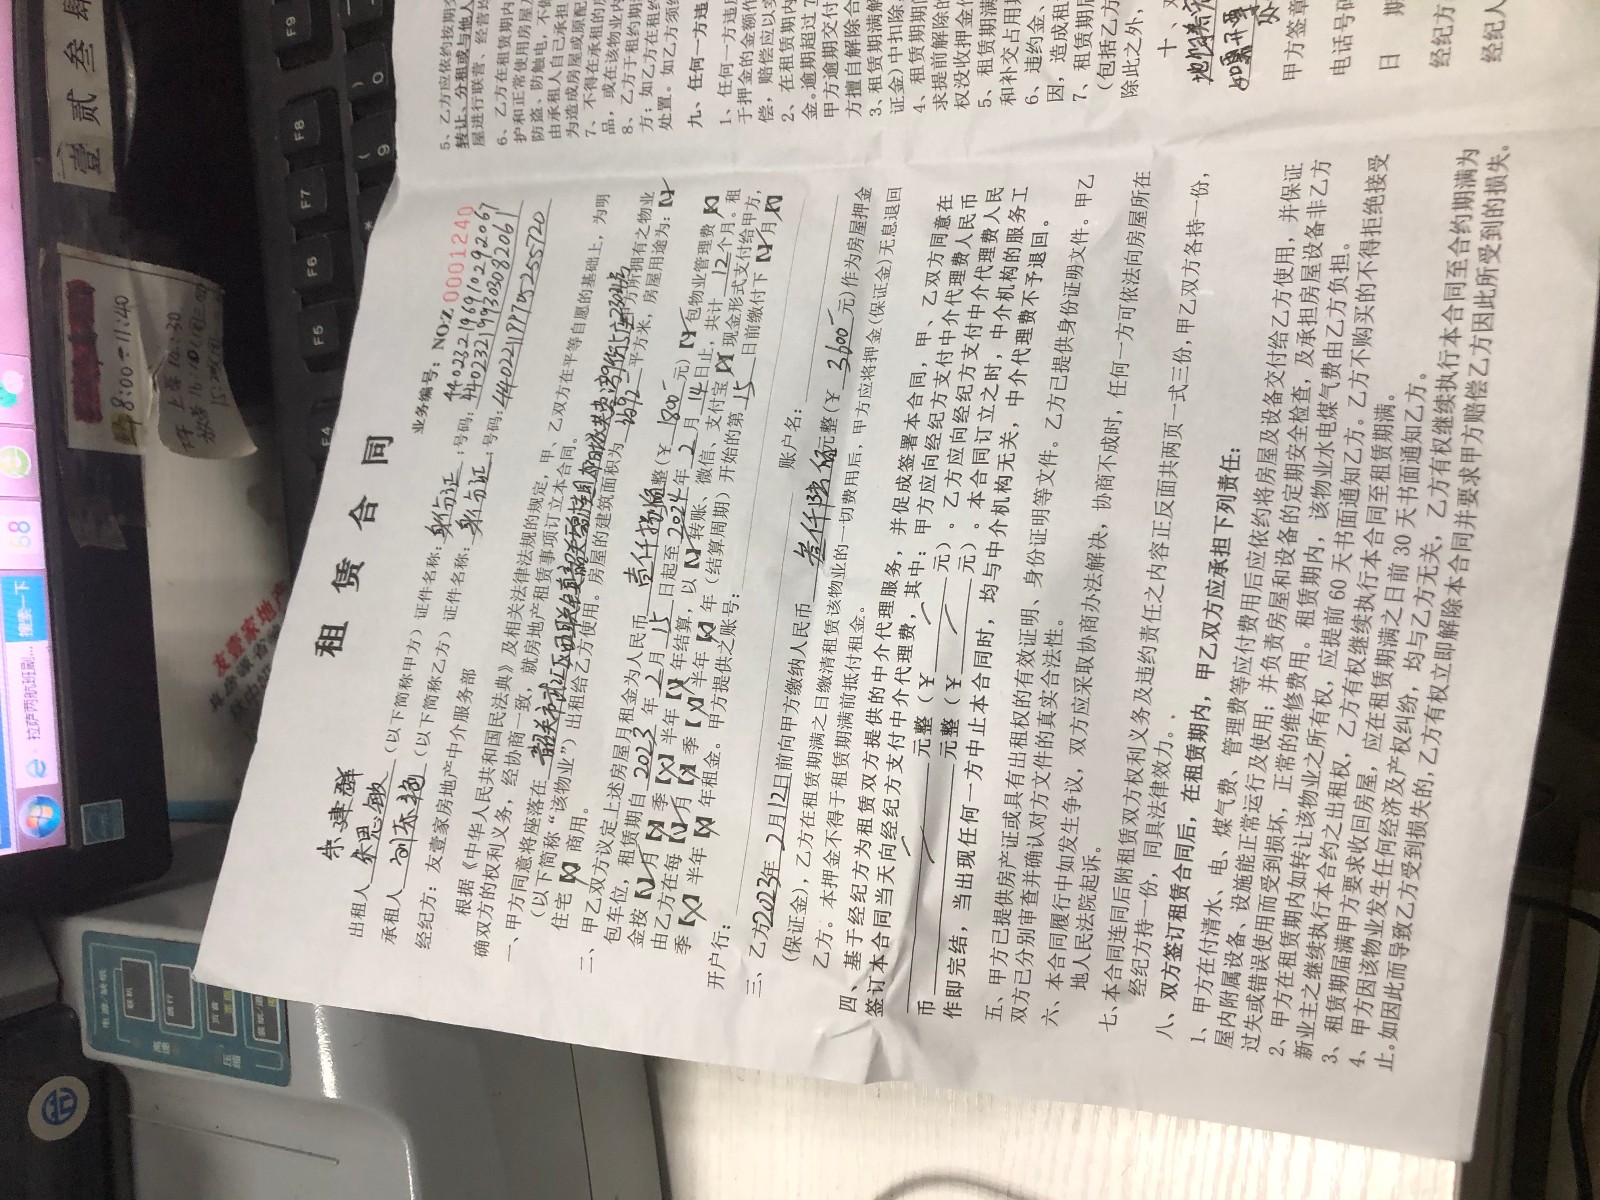 租赁合同
业务编号：NO:Z 0001240
朱建群
出租人 朱思敏 (以下简称甲方) 证件名称：身份证：号码：440232196910292067
承租人 (以下简称乙方) 证件名称：身份证：号码：
经纪方：友壹家房地产中介服务部
根据《中华人民共和国民法典》及相关法律法规的规定，甲、乙双方在平等自愿的基础上，为明
确双方的权利义务，经协商一致，就房地产租赁事项订立本合同。
一、甲方同意将座落在 韶关市
(以下简称“该物业”) 出租给乙方使用。房屋的建筑面积为 平方米，房屋用途为：【√】
住宅【×】商用。
二、甲乙双方议定上述房屋月租金为人民币 整(¥ 1800 元)【√】包物业管理费【×】
包车位，租赁期自 2023 年 2 月 15 日起至 2024 年 2 月 14 日止，共计 12 个月。租
金按【√】月【×】季【×】半年【×】年结算，以【√】转账、微信、支付宝【×】现金形式支付给甲方，
由乙方在每【√】月【×】季【×】半年【×】年 (结算周期) 开始的第 15 日前缴付下【√】月【×】
季【×】半年【×】年租金。甲方提供之账号：
开户行： 账户名：
三、乙方2023年 2月12日前向甲方缴纳人民币 叁仟陆佰元整(¥ 3600 元)作为房屋押金
(保证金)，乙方在租赁期满之日缴清租赁该物业的一切费用后，甲方应将押金(保证金)无息退回
乙方。本押金不得于租赁期满前抵付租金。
四、基于经纪方为租赁双方提供的中介代理服务，并促成签署本合同，甲、乙双方同意在
签订本合同当天向经纪方支付中介代理费，其中：甲方应向经纪方支付中介代理费人民币
元整（¥ 元）。乙方应向经纪方支付中介代理费人民
币 元整（¥ 元）。本合同订立之时，中介机构的服务工
作即完结，当出现任何一方中止本合同时，均与中介机构无关，中介代理费不予退回。
五、甲方已提供房产证或具有出租权的有效证明、身份证明等文件。乙方已提供身份证明文件。甲乙
双方已分别审查并确认对方文件的真实合法性。
六、本合同履行中如发生争议，双方应采取协商办法解决，协商不成时，任何一方可依法向房屋所在
地人民法院起诉。
七、本合同连同后附租赁双方权利义务及违约责任之内容正反面共两页一式三份，甲乙双方各持一份，
经纪方持一份，同具法律效力。
八、双方签订租赁合同后，在租赁期内，甲乙双方应承担下列责任：
1、甲方在付清水、电、煤气费、管理费等应付费用后应依约将房屋及设备交付给乙方使用，并保证
屋内附属设备、设施能正常运行及使用；并负责房屋和设备的定期安全检查，及承担房屋设备非乙方
过失或错误使用而受到损坏，正常的维修费用。租赁期内，该物业水电煤气费由乙方负担。
2、甲方在租赁期内如转让该物业之所有权，应提前 60 天书面通知乙方。乙方不购买的不得拒绝接受
新业主之继续执行本合约之出租权，乙方有权继续执行本合同至租赁期满。
3、租赁期届满甲方要求收回房屋，应在租赁期满之日前 30 天书面通知乙方。
4、甲方因该物业发生任何经济及产权纠纷，均与乙方无关，乙方有权继续执行本合同至合约期满为
止。如因此而导致乙方受到损失的，乙方有权立即解除本合同并要求甲方赔偿乙方因此所受到的损失。
5、乙方应依约按期
转让、分租或与他人
屋进行联营、经营
6、乙方在租赁期内
护和正常使用房屋
防盗、防触电，不
由承租人自己承担
为造成房屋或原配
7、不得在承租的
品，或在该物业内
8、乙方于租约期
方；如乙方在租
处置。如乙方须
九、任何一方违
1、任何一方违
于押金的金额作
偿，赔偿应以
2、在租赁期内
金。逾期超过7
甲方逾期交付
方擅自解除合
3、租赁期满解
证金)中扣除
4、租赁期期
求提前解除的
权没收押金作
5、租赁期满
和补交占用
6、违约金、
因，造成租
7、租赁期
(包括乙方
除此之外，
十、
甲方签章
电话号码
日 期
经纪方
经纪人
壹贰叁肆
8:00-11:40
友壹家地产
拉萨两航班刷...
搜索一下
68
F4
F5
F6
F7
F8
F9